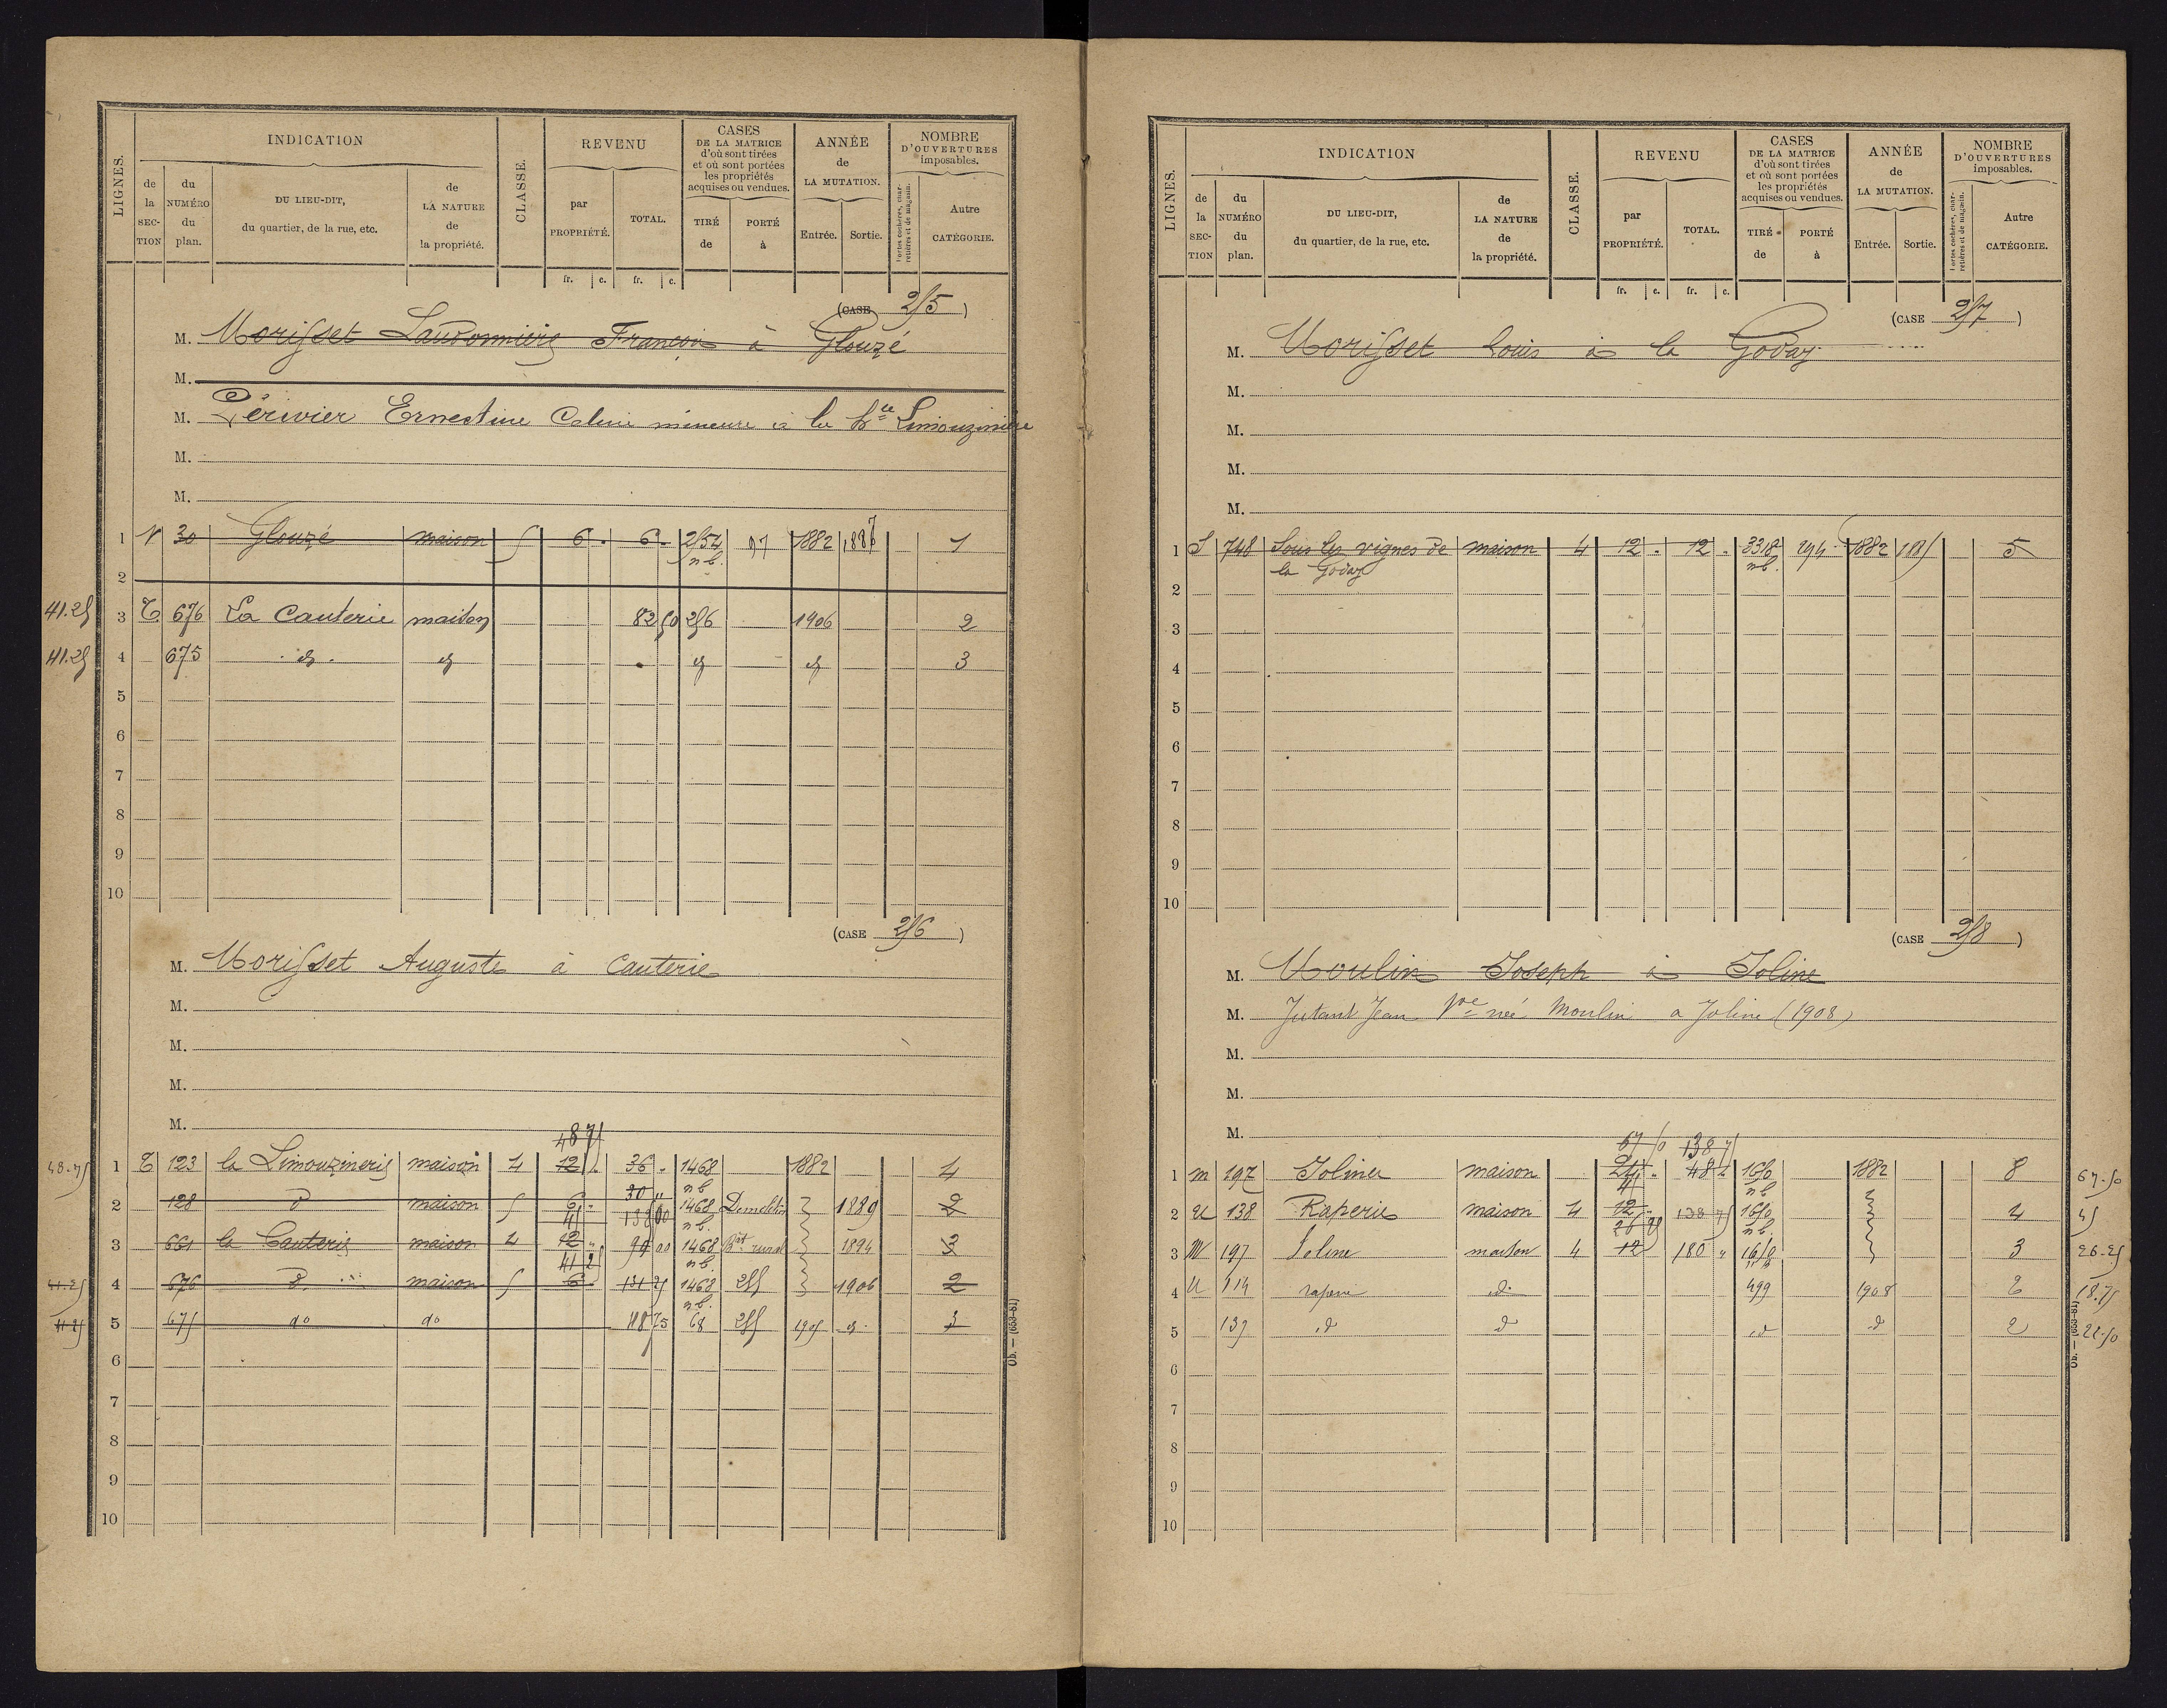 LIGNES.
INDICATION
de la SECTION
du NUMÉRO du plan.
DU LIEU-DIT, du quartier, de la rue, etc.
de LA NATURE de la propriété.
CLASSE.
REVENU
par PROPRIÉTÉ.
TOTAL.
CASES DE LA MATRICE d'où sont tirées et où sont portées les propriétés acquises ou vendues.
TIRÉ de
PORTÉ à
ANNÉE de LA MUTATION.
Entrée.
Sortie.
NOMBRE D'OUVERTURES imposables.
Portes cochères, charretières et de magasin.
Autre CATÉGORIE.
fr. c. fr. c.
(CASE 255)
M. Morisset Laudonnière François à Glouzé
M.
M. Périvier Ernestine mineure à la Limouzinière
M.
M.
1 V 30 Glouzé maison 5 6 . 6 . 2554 n b. 97 1882 1887 1
2
41.25 3 C 676 La Cauterie maison 82 50 256 1906 2
41.25 4 675 d d . d d 3
5
6
7
8
9
10
(CASE 256)
M. Morisset Auguste à Cauterie
M.
M.
M.
M.
48 75
48.75 1 C 123 la Limouzinerie maison 4 12 36 1468 n b 1882 4
2 128 d maison 5 6 45 30 138 00 1468 n b. Demolition 1889 2
3 661 la Cauterie maison 4 12 90 00 1468 n b. Bat rural 1894 3
41.25 4 676 d maison 5 41 25 6 131 25 1468 n b. 255 1906 2
41.25 5 675 do do 118 75 68 255 1905 d 3
6
7
8
9
10
Ob. — (653-81)
LIGNES.
INDICATION
de la SECTION
du NUMÉRO du plan.
DU LIEU-DIT, du quartier, de la rue, etc.
de LA NATURE de la propriété.
CLASSE.
REVENU
par PROPRIÉTÉ.
TOTAL.
CASES DE LA MATRICE d'où sont tirées et où sont portées les propriétés acquises ou vendues.
TIRÉ de
PORTÉ à
ANNÉE de LA MUTATION.
Entrée.
Sortie.
NOMBRE D'OUVERTURES imposables.
Portes cochères, charretières et de magasin.
Autre CATÉGORIE.
fr. c. fr. c.
(CASE 257)
M. Morisset Louis à la Goday
M.
M.
M.
M.
1 S 748 Sous les vignes de la Goday maison 4 12 . 12 . 3318 n b. 294 1882 1885 5
2
3
4
5
6
7
8
9
10
(CASE 258)
M. Moulin Joseph à Joline
M. Jutant Jean Vve née Moulin a Joline (1908)
M.
M.
M.
67 50 138 75
1 m 197 Joline maison 24 48 1650 n b 1882 8 67.50
2 U 138 Raperie maison 4 45 12 138 75 1650 n b. 4 45
3 M 197 Joline maison 4 26 25 12 180 1650 3 26.25
4 U 114 raperie d 499 1908 2 18.75
5 137 d d d d 2 22.50
6
7
8
9
10
Ob. — (653-81)